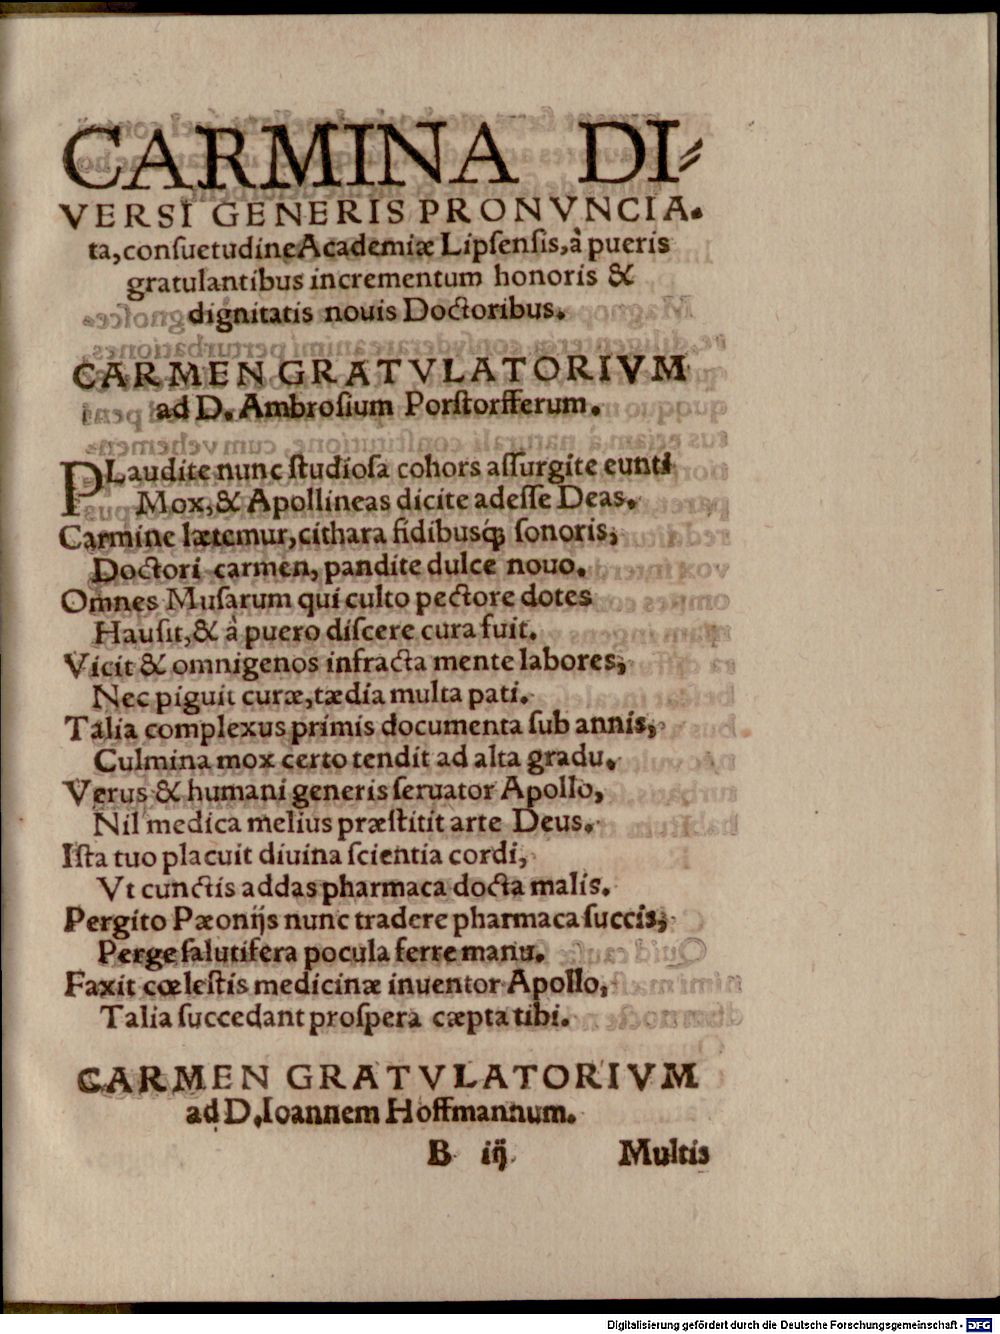 CARMINA DI-
VERSI GENERIS PRONVNCIA.
ta, conſuetudine Academiæ Lipſenſis, à pueris
gratulantibus incrementum honoris &
dignitatis nouis Doctoribus.
CARMEN GRATVLATORIVM
ad D. Ambroſium Porſtorfferum.
PLaudite nunc ſtudioſa cohors aſſurgite eunti
Mox, & Apollineas dicite adeſſe Deas.
Carmine lætemur, cithara fidibusq́; ſonoris,
Doctori carmen, pandite dulce nouo.
Omnes Muſarum qui culto pectore dotes
Hauſit, & à puero diſcere cura fuit.
Vicit & omnigenos infracta mente labores,
Nec piguit curæ, tædia multa pati.
Talia complexus primis documenta ſub annis,
Culmina mox certo tendit ad alta gradu.
Verus & humani generis ſeruator Apollo,
Nil medica melius præſtitit arte Deus.
Iſta tuo placuit diuina ſcientia cordi,
Vt cunctis addas pharmaca docta malis.
Pergito Pæonijs nunc tradere pharmaca ſuccis,
Perge ſalutifera pocula ferre manu.
Faxit cœleſtis medicinæ inuentor Apollo,
Talia ſuccedant proſpera cæpta tibi.
CARMEN GRATVLATORIVM
ad D. Ioannem Hoffmannum.
B iij Multis
Digitalisierung gefördert durch die Deutsche Forschungsgemeinschaft - DFG